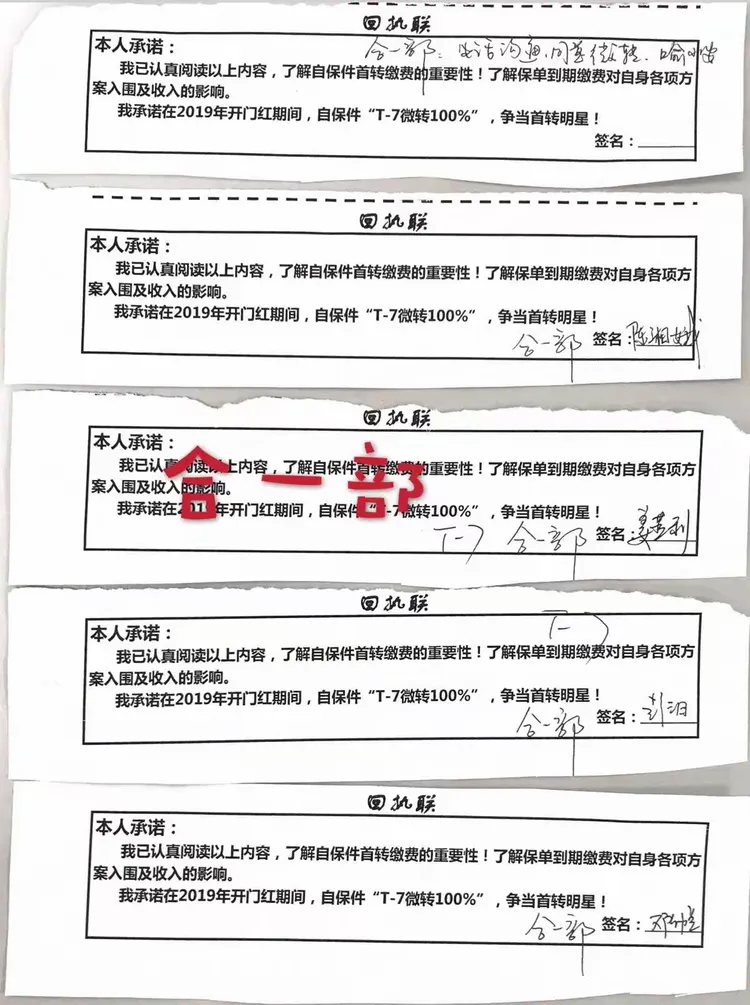 回执联
本人承诺：
合一部：电话沟通，同等微转、
我已认真阅读以上内容，了解自保件首转缴费的重要性！了解保单到期缴费对自身各项方
案入围及收入的影响。
我承诺在2019年开门红期间，自保件“T-7微转100%”，争当首转明星！
签名：
回执联
本人承诺：
我已认真阅读以上内容，了解自保件首转缴费的重要性！了解保单到期缴费对自身各项方
案入围及收入的影响。
我承诺在2019年开门红期间，自保件“T-7微转100%”，争当首转明星！
合一部 签名：陈湘
回执联
本人承诺：
我已认真阅读以上内容，了解自保件首转缴费的重要性！了解保单到期缴费对自身各项方
合一部
案入围及收入的影响。
我承诺在2019年开门红期间，自保件“T-7微转100%”，争当首转明星！
T-7 合一部 签名：姜
回执联
本人承诺：
T-7
我已认真阅读以上内容，了解自保件首转缴费的重要性！了解保单到期缴费对自身各项方
案入围及收入的影响。
我承诺在2019年开门红期间，自保件“T-7微转100%”，争当首转明星！
合一部 签名：
回执联
本人承诺：
我已认真阅读以上内容，了解自保件首转缴费的重要性！了解保单到期缴费对自身各项方
案入围及收入的影响。
我承诺在2019年开门红期间，自保件“T-7微转100%”，争当首转明星！
合一部 签名：邓